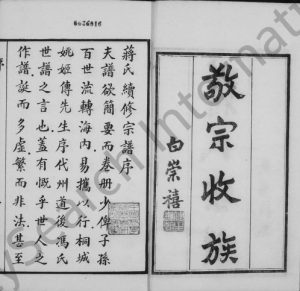 敬宗收族
白崇禧
蔣氏續修宗譜序
夫譜欲簡要而卷册少俾子孫
百世流轉海內易攜以行桐城
姚姬傳先生序代州道後馮氏
世譜之言也蓋有慨乎世人之
作譜誕而多虛繁而非法甚至